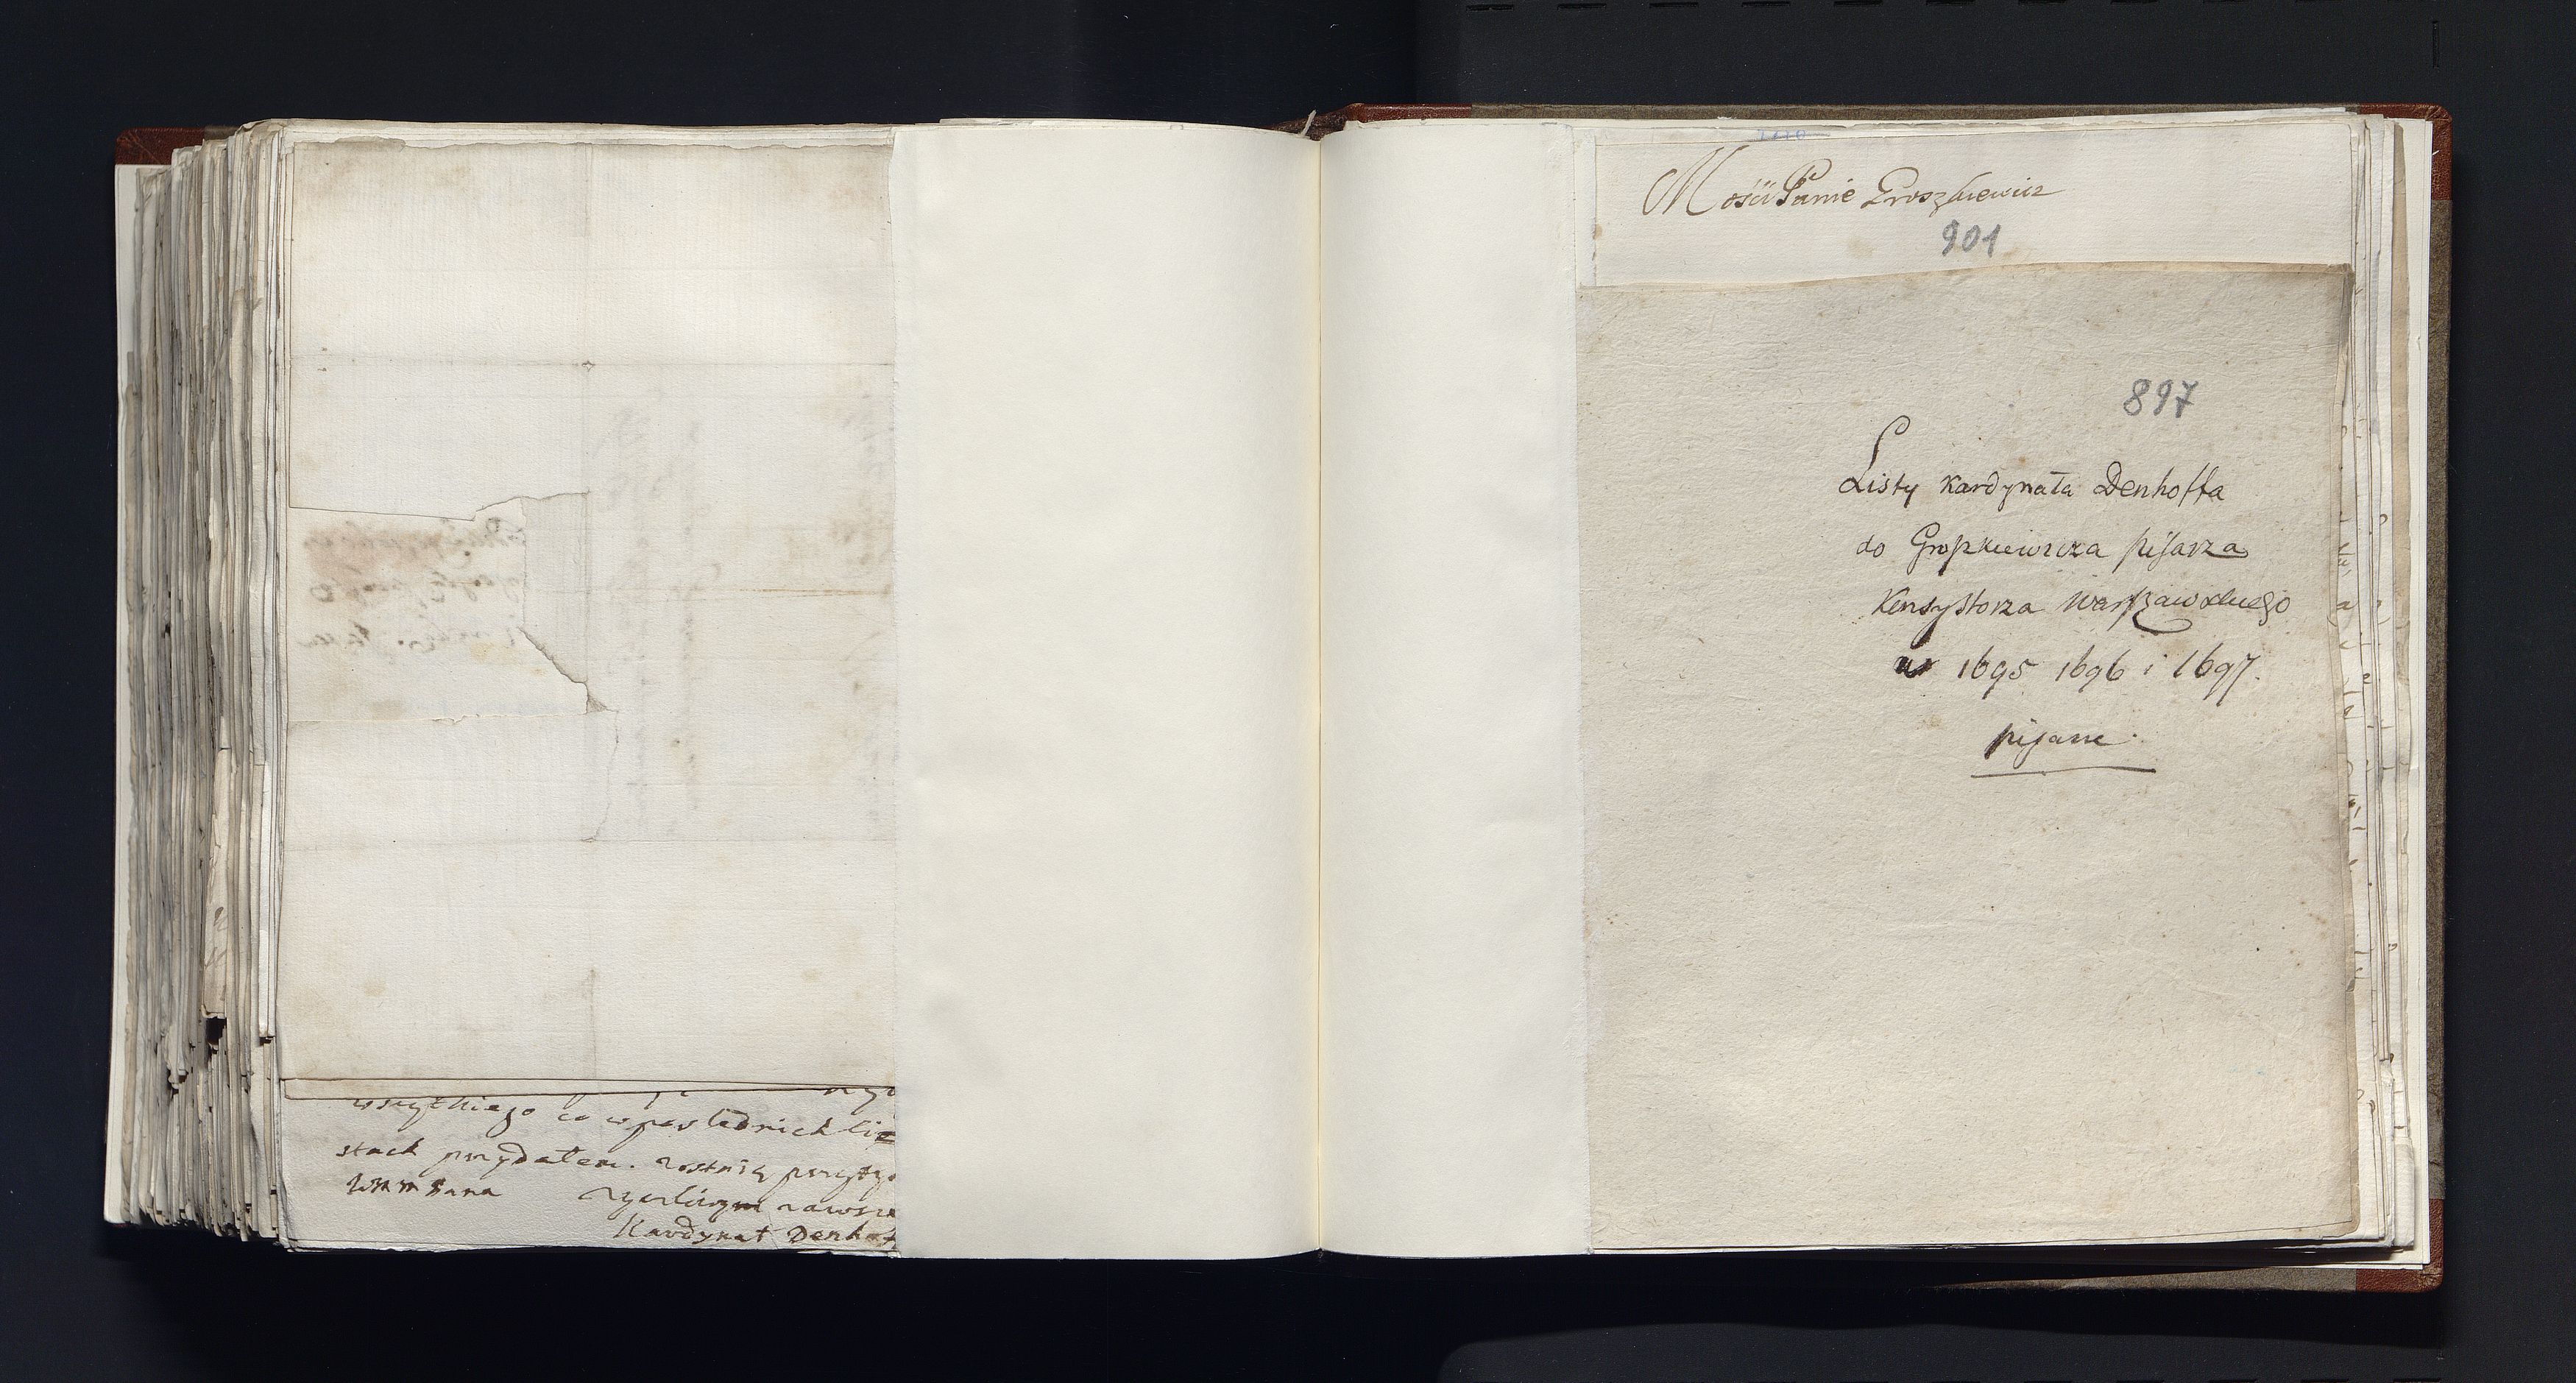 wszytkiego co w posladnich li=
stach przydałem. zostaię przytym
WMM Pana życzliwym zawsze
Kardynał Denhoff
Mości Panie Groszkiewicz
901
897
Listy Kardynała Denhoffa
do Groszkiewicza pisarza
Konsystorza Warszawskiego
w 1695 1696 i 1697.
pisane.